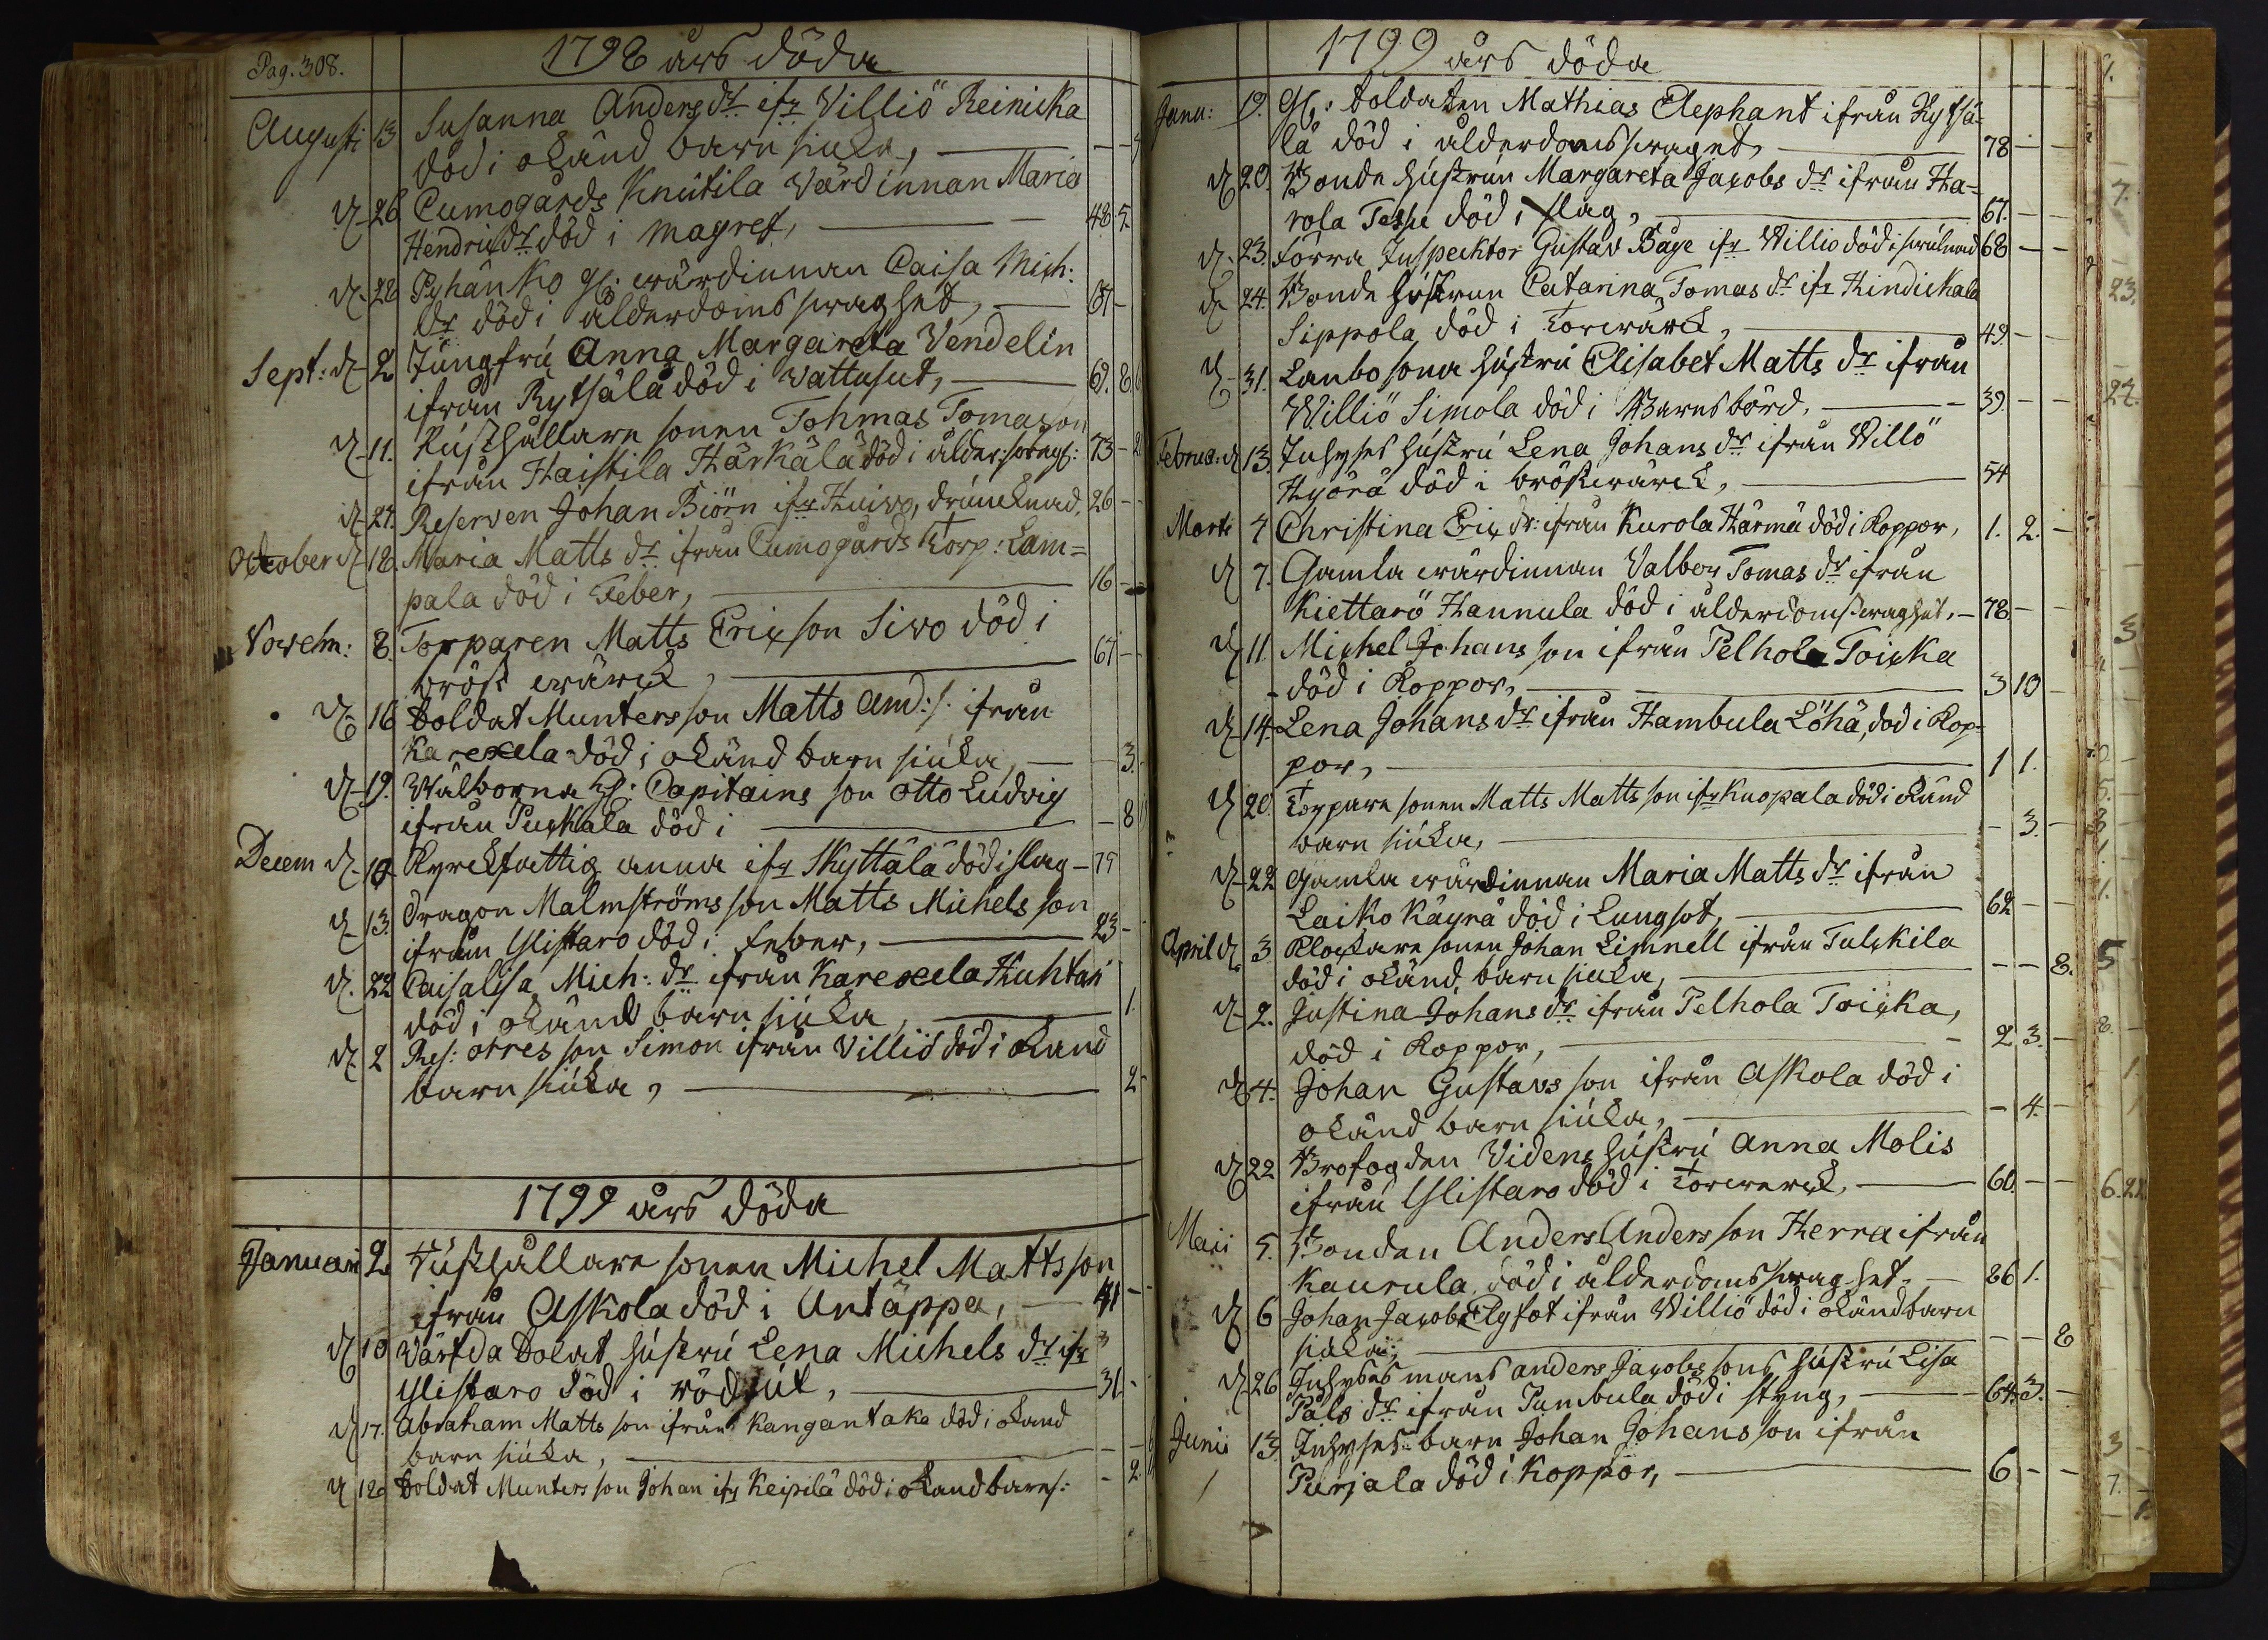 Pag. 308.
1798 års döda
Augusti 13 Susanna Anders dr ifr Villiö Reinicka
död i okänd barn siuka, — —
d 26 Cumogårds Knutila Värdinnan Maria
Hendrics dr död i magref, — 48 5
d 28 Pyhänko gl: wärdinnan Caisa Mich:
dr död i ålderdoms swaghet, — 67 —
Sept: d 2 Jungfru Anna Margareta Vendelin
ifrån Rytsälä död i Vattusut, — 69. 8
d 11. Rusthållare sonen Tohmas Tomason
ifrån Haistila Härkälä död i ålder:swagh: 73 — 2
d 24. Reserven Johan Biörn ifr Huivo, drunknad, 26 — —
October d 18. Maria Matts dr ifrån Cumogårds Torp: Lam=
pala död i Feber, — 16 —
Novem: 8. Torparen Matts Ericson Sivo död i
bröst wärck, — 67 —
d 16 Soldat Munters son Matts And: s. ifrån
Karexela död i okänd barn siuka, — 3.
d 19. Wälborna H: Capitains son Otto Ludvig
ifrån Puckala död i — — 8
Decem d 10 Kyrckfattig Anna ifr Skyttälä död i slag — 79
d 13. Dragon Malmströms son Matts Michels son
ifrån Ylistaro död i feber, — 23 —
d. 22 Caisalisa Mich: dr ifrån Karexela Huhtan
död i okänd barn siuka, — 1.
d 2 Res: orres son Simon ifrån Villiö död i okand
barn siuka, — 2
1799 års döda
Januari 2. Rusthållare sonen Michel Matts son
ifrån Askola död i Antäppa, — 41 —
d 10 Värfda Solat hustru Lena Michels dr ifr
Ylistaro död i rödsut, — 31. —
d 17. Abraham Matts son ifrån Kangantaka död i okand
barn siuka, — —
d 120 Soldat Munters son Johan ifr Keipilä död i okand barns: — 2.
1799 års döda
Janu: 19. Gl: Soldaten Mathias Elephant ifrån Rytsä-
lä död i ålderdoms swaghet, — 78 — —
d 20. Bonde hustrun Margareta Jacobs dr ifrån Ha-
rola Tessu död i slag, — 67. — —
d 23. Förra Inspecktor Gustav Båge ifr Willio död i swulnad 68 — —
d 24. Bonde hustrun Catarina Tomas dr ifr Hindickala
Sippola död i torwärck, — 49 — —
d 31. Lanbo sona hustru Elisabet Matts dr ifrån
Williö Simola död i Barnsbörd. — 39. — —
Februa: d 13. Inhyses hustru Lena Johans dr ifrån Willö
Hyörä död i bröstwärck, — 54
Marti 4 Christina Eric dr: ifrån Kurola Härmä död i Koppor, 1. 2. —
d 7. Gamla wärdinnan Valbor Tomas dr ifrån
Kiettarö Hannula död i ålderdomswaghet, — 78. — —
d 11. Michel Johans son ifrån Pelhola Toicka
död i Koppor, — 3 10 —
d 14. Lena Johans dr ifrån Hambula Löhä, död i Kop-
por, — 1 1. —
d 20. Torpare sonen Matts Matts son ifr Knopala död i okänd
barn siuka, — — 3. —
d 22 Gamla wärdinnan Maria Matts dr ifrån
Laiko Käyrä död i Lungsot, — 62 — —
April d 3 Klockare sonen Johan Limnell ifrån Tulckila
död i okänd, barn siuka, — — — 8.
d 2. Justina Johans dr ifrån Pelhola Toicka,
död i Koppor, — 2 3. —
d 4. Johan Gustavs son ifrån Askola död i
okänd barn siuka, — — 4. —
d 22 Brofogden Videns hustru Anna Molis
ifrån Ylistaro död i Torwerck, — 60. — —
Maii 5. Bonden Anders Anders son Herra ifrån
Kaurula, död i ålderdoms swaghet. — 86 1. —
d 6 Johan Jacobs Elgfot ifrån Williö död i okänd barn
siuka; — — — 8
d 26 Inhyses mans anders Jacobs sons hustru Lisa
Påls dr ifrån Pambula död i styng, — 64. 3. —
Junii 13. Inhyses barn Johan Johans son ifrån
Purjala död i Koppor, — 6 — —